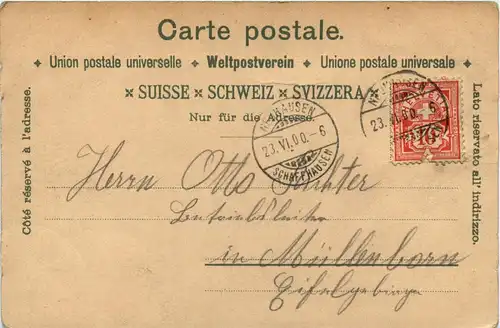 Carte postale.
Union postale universelle ✦ Weltpostverein ✦ Unione postale universale
× SUISSE × SCHWEIZ × SVIZZERA ×
Nur für die Adresse.
Côté réservé à l'adresse.
Lato riservato all' indirizzo.
NEUHAUSEN
23.VI.00.-6
SCHAFFHAUSEN
NEUHAUSEN
23.VI.00.-6
HELVETIA
10
Herrn Otto Richter
Betriebsleiter
in Müllenborn
Eifelgebirge